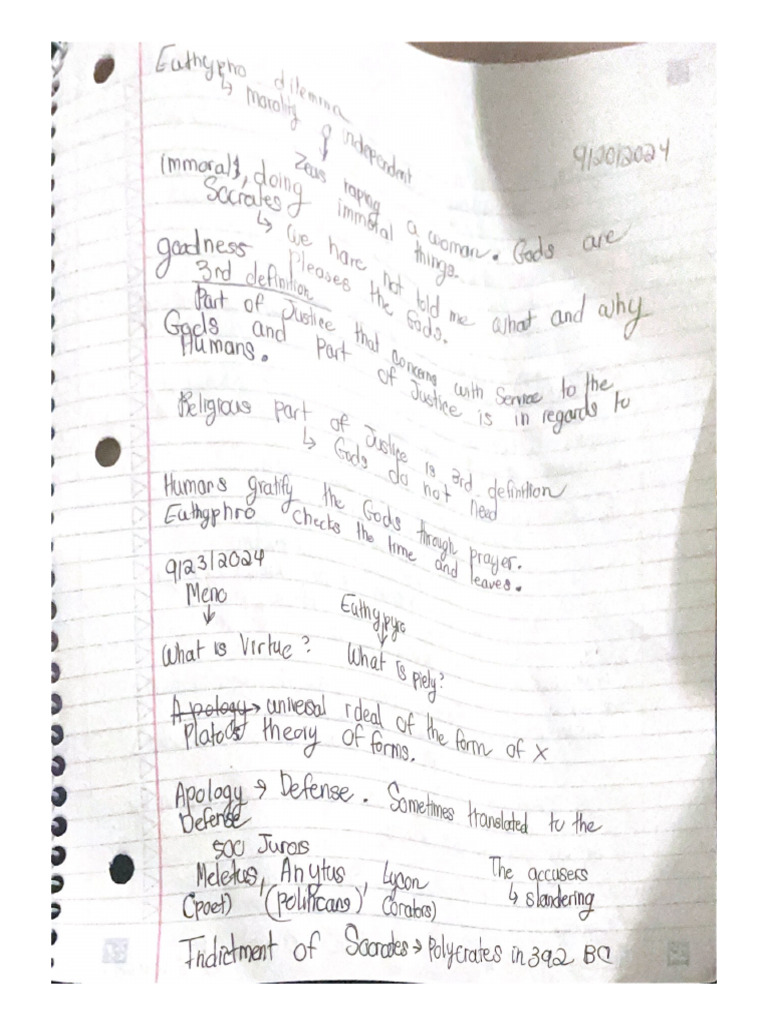 Euthypho dilemma
↳ morality independent
9/20/2024
Zeus raping a woman. Gods are
(mmoral), doing immoral things.
Socrates
↳ We hare not told me what and why
goodness Pleases the Gods.
3rd definition
Part of Justice that concerns with Service to the
Gods and part of Justice is in regards to
Humans.
Religious part of Justice is 3rd definition
↳ Gods do not need
Humans gratify the Gods through prayer.
Euthyphro checks the time and leaves.
9/23/2024
Meno Euthypyro
↓ ↓
What is Virtue? What is piety?
Apology → universal ideal of the form of x
Plato's theory of forms.
Apology → Defense. Sometimes translated to the
Defense
500 Jurors
Meletus, Anytus, Lycon The accusers
(poet) (politicans) (orators) ↳ slandering
Indictment of Socrates → Polycrates in 392 BC